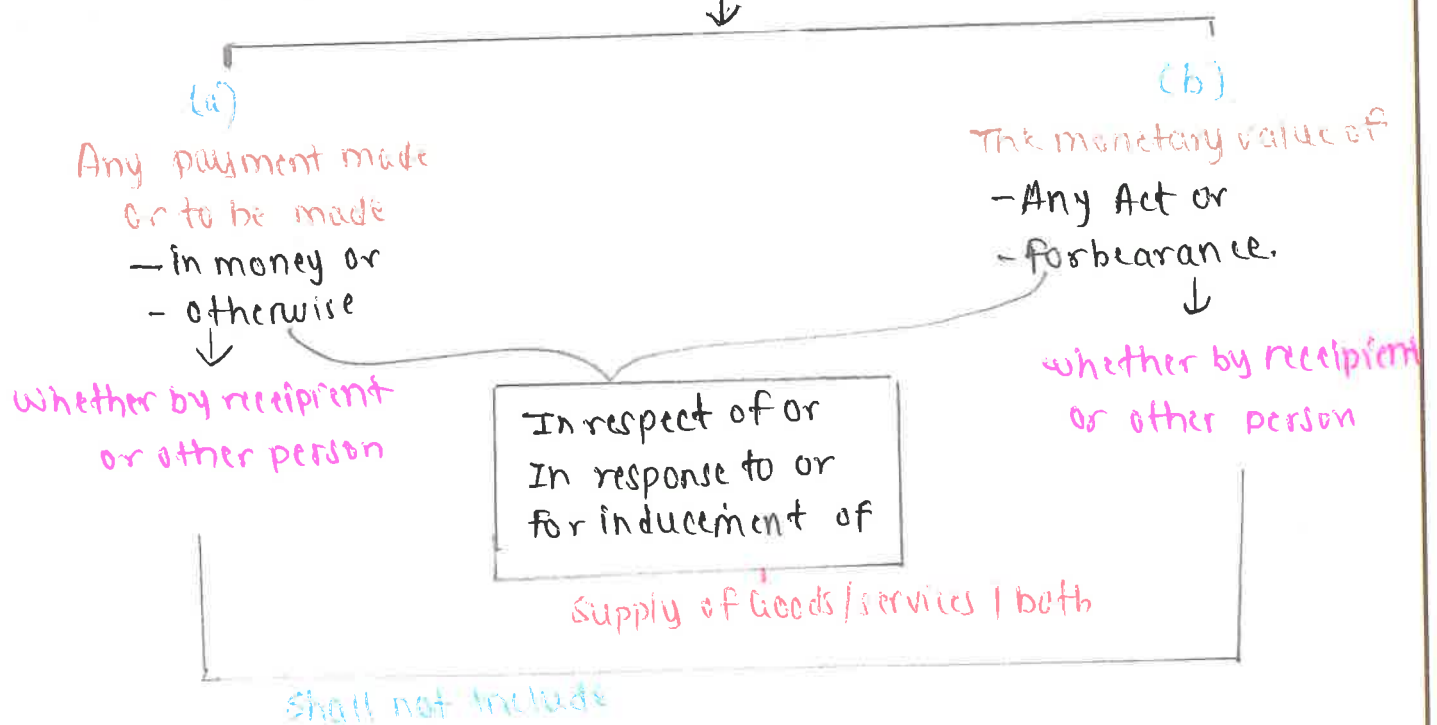 (a)
Any payment made
or to be made
- in money or
- otherwise
whether by receipient
or other person
(b)
The monetary value of
- Any Act or
- forbearance.
whether by receipient
or other person
In respect of or
In response to or
for inducement of
supply of Goods/services / both
Shall not include